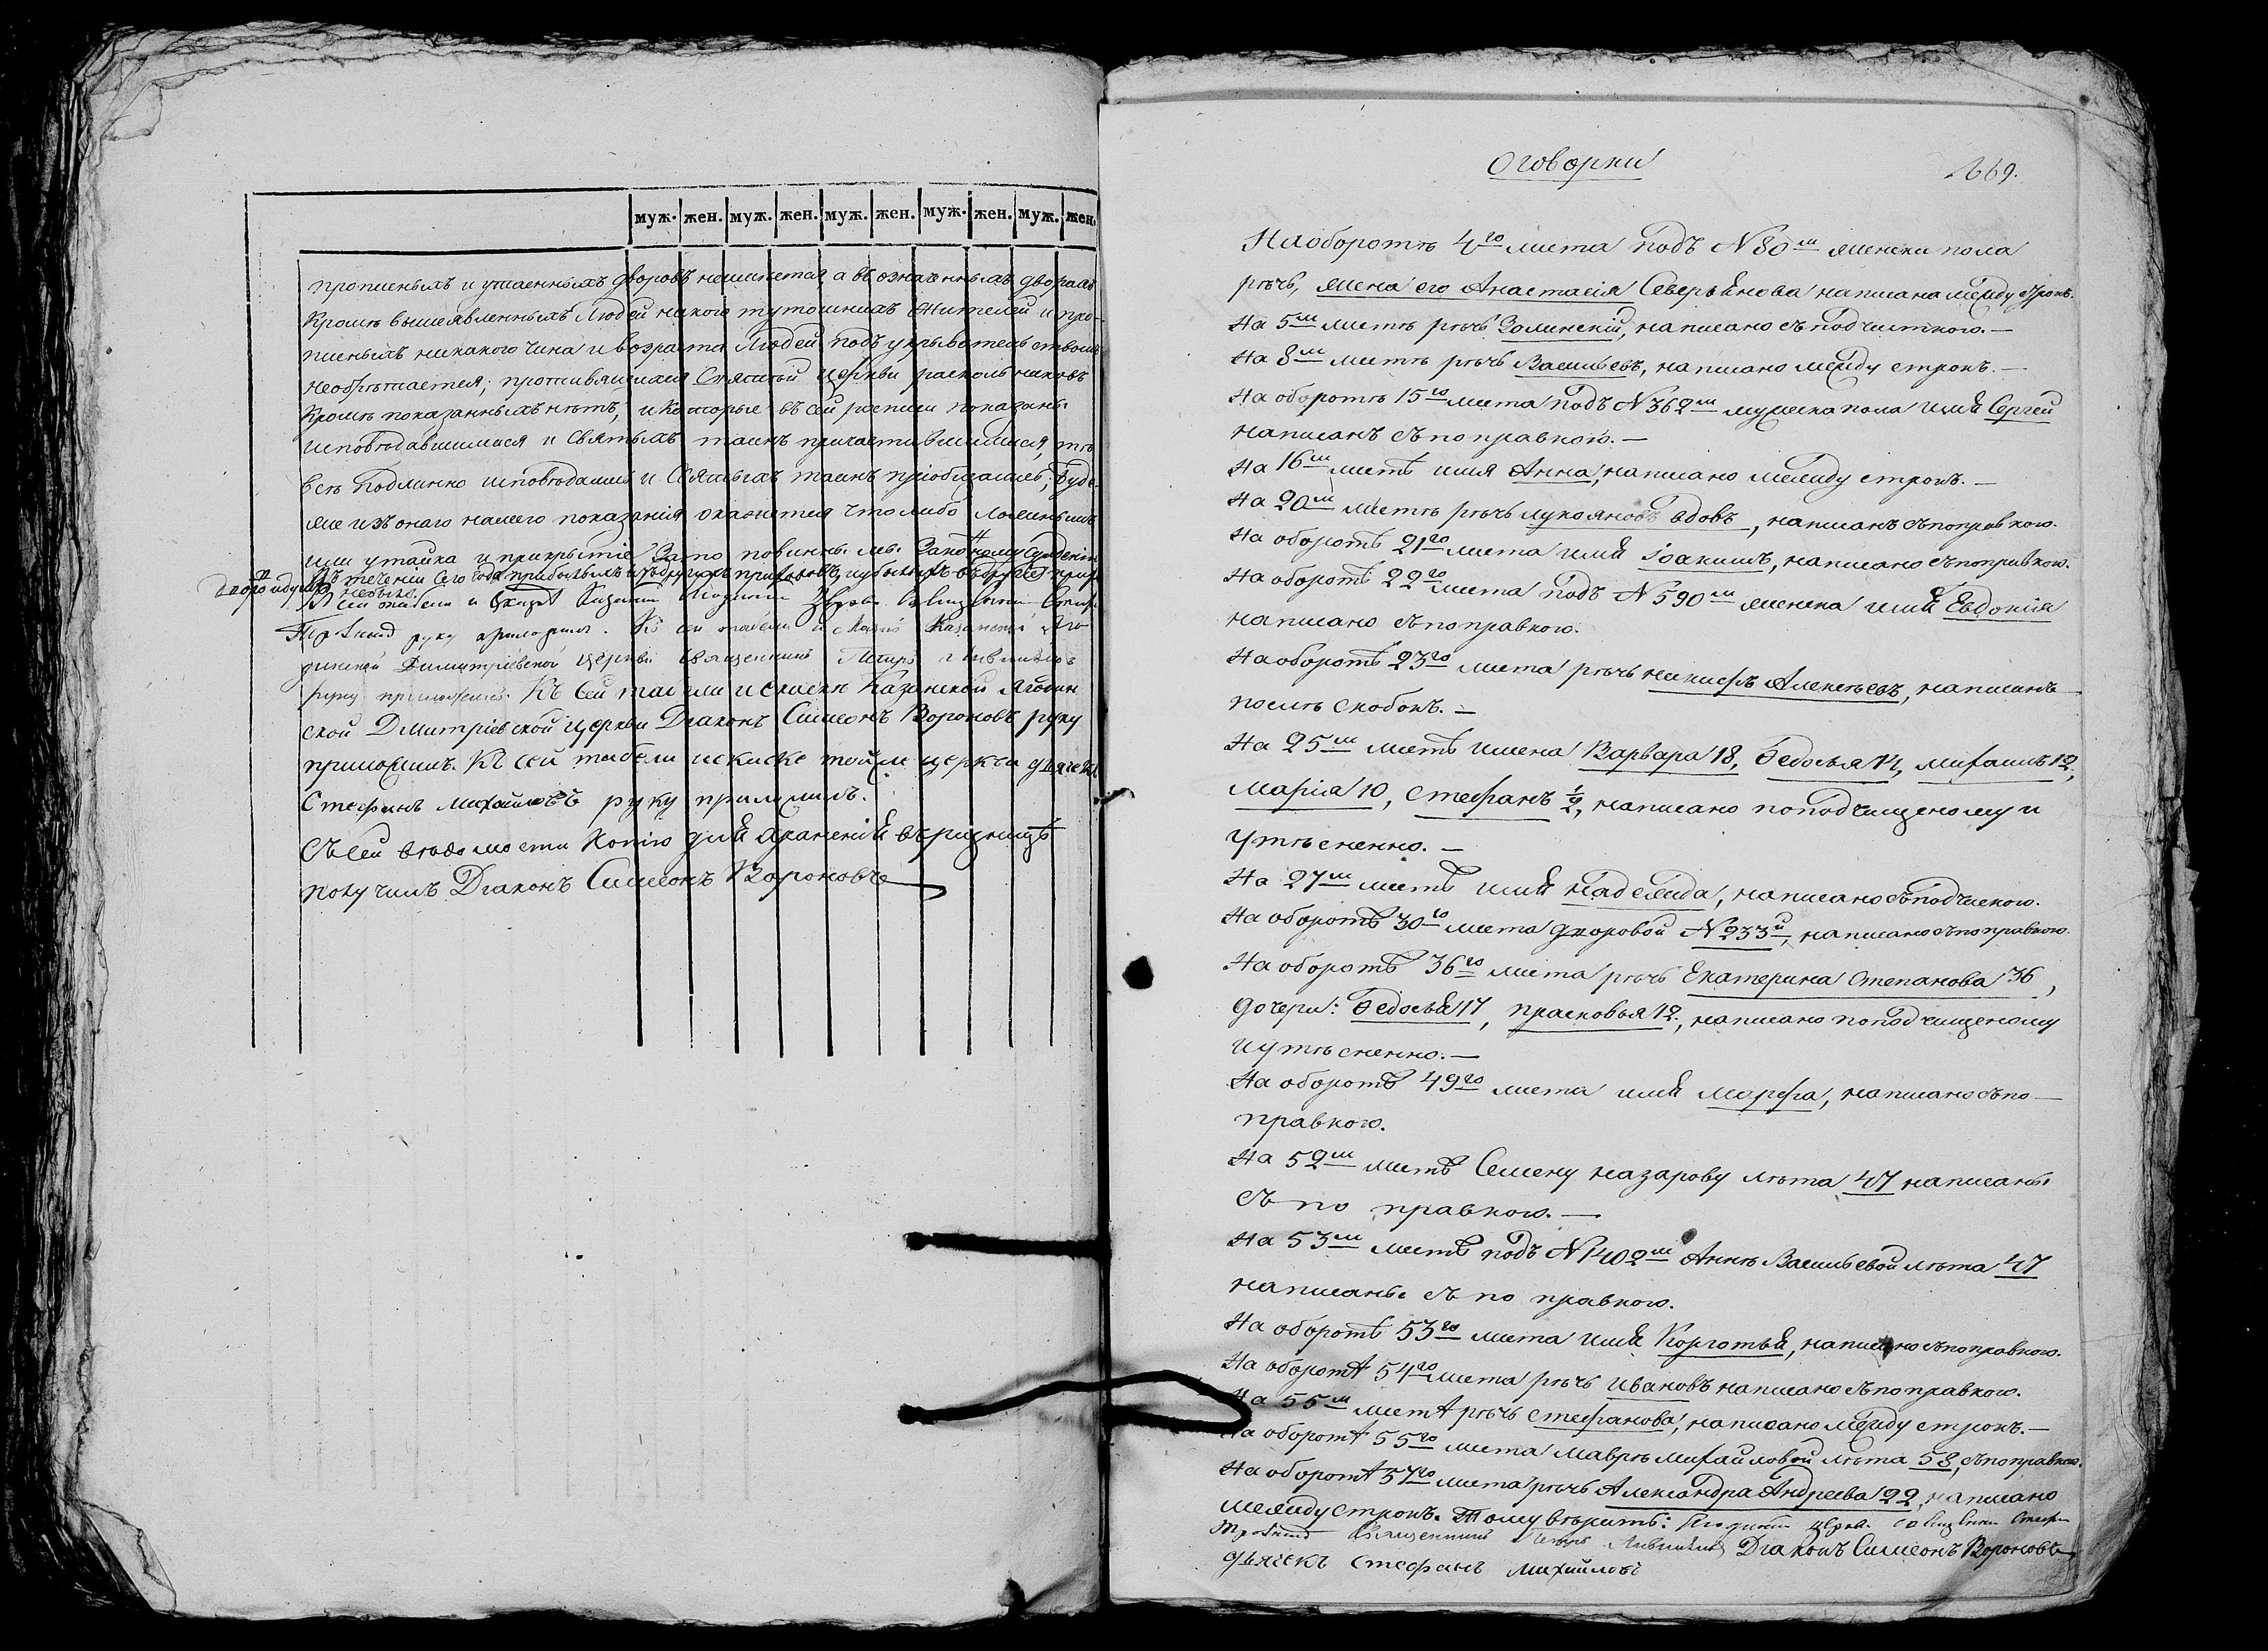 муж. жен. муж. жен. муж. жен. муж. жен. муж. жен.
прописныхъ и утаенныхъ дворовъ неимѣется, а въ означенныхъ дворахъ
кромѣ вышеявленныхъ людей никого тутошнихъ жителей и про-
писныхъ никакого чина и возраста людей подъ укрывательствомъ
необрѣтается; противящихся Святой церкви раскольниковъ
кромѣ показанныхъ нѣтъ, и которые въ сей росписи показаны
исповѣдавшимися и Святыхъ таинъ причастившимися, тѣ
всѣ подлинно исповѣдались и Святыхъ таинъ пріобщались; буде
же изъ онаго нашего показанія окажется что либо ложнымъ
или утайка и прикрытіе За то повинны мы Законному сужденію
Въ теченіи сего года прибылыхъ изъ другихъ приходовъ, и убылыхъ въ другіе прих
небыло.
К сей табели и
руку приложилъ. Къ сей табели и Казанской Яго
динской Димитріевской церкви священникъ Петръ
руку приложилъ. Къ сей табели и скаске Казанской Ягодин
ской Дмитріевской церкви Діаконъ Симеонъ Вороновъ руку
приложилъ. Къ сей табели искаске тойже церкви дьячекъ
Стефанъ Михайловъ руку приложилъ.
Съ сей вѣдомости копію для храненія въ ризницѣ
получилъ Діаконъ Симеонъ Вороновъ
Оговорки
669.
На оборотѣ 4го листа подъ N 80м женска пола
рѣчь, жена его Анастасія Северьянова написана между строкъ.
На 5м листѣ рѣчь Золинскій, написано съ подчисткою. —
На 8м листѣ рѣчь Васильевъ, написано между строкъ. —
На оборотѣ 15го листа подъ N 362м мужеска пола имя Сергей
написанъ съ поправкою. —
На 16м листѣ имя Анна, написано между строкъ. —
На 20м листѣ рѣчь Лукояновъ вдовъ, написанъ съ поправкою.
На оборотѣ 21го листа имя Іоакимъ, написано съ поправкою.
На оборотѣ 22го листа подъ N 590м женска имя Евдокія
написано съ поправкою.
На оборотѣ 23го листа рѣчь Никифъ Алексѣевъ, написанъ
послѣ скобокъ. —
На 25м листѣ имена Варвара 18, Федосья 14, Михаилъ 12,
Марія 10, Стефанъ ½, написано по подчищеному и
утѣсненно. —
На 27м листѣ имя Надежда, написано съ подчискою.
На оборотѣ 30го листа дворовой N 233й, написано съ поправкою.
На оборотѣ 36го листа рѣчь Екатерина Степанова 36,
дочери: Федосья 17, Прасковья 12, написано по подчищеному
и утѣсненно. —
На оборотѣ 49го листа имя Марфа, написано съ по-
правкою.
На 52м листѣ Семену Назарову лѣта 47 написаны
съ поправкою. —
На 53м листѣ подъ N 1402м Аннѣ Васильевой лѣта 47
написаны съ поправкою.
На оборотѣ 53го листа имя Корготья, написано съ поправкою.
На оборотѣ 54го листа рѣчь Ивановъ написано съ поправкою.
На 55м листѣ рѣчь Стефанова, написано между строкъ. —
На оборотѣ 55го листа Маврѣ Михайловой лѣта 58, съ поправкою.
На оборотѣ 57го листа рѣчь Александра Андреева 22, написано
между строкъ. Тому вѣрить:
Священникъ Петръ Діаконъ Симеонъ Вороновъ
дьячекъ Стефанъ Михайловъ